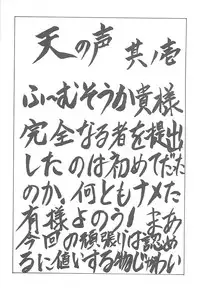 天の声 其ノ壱
ふ〜むそうか貴様
完全なる者を提出
したのは初めてだた
のか、何ともナメた
有様よのう！まあ
今回の頑張りは認め
るに値いする物じゃわい